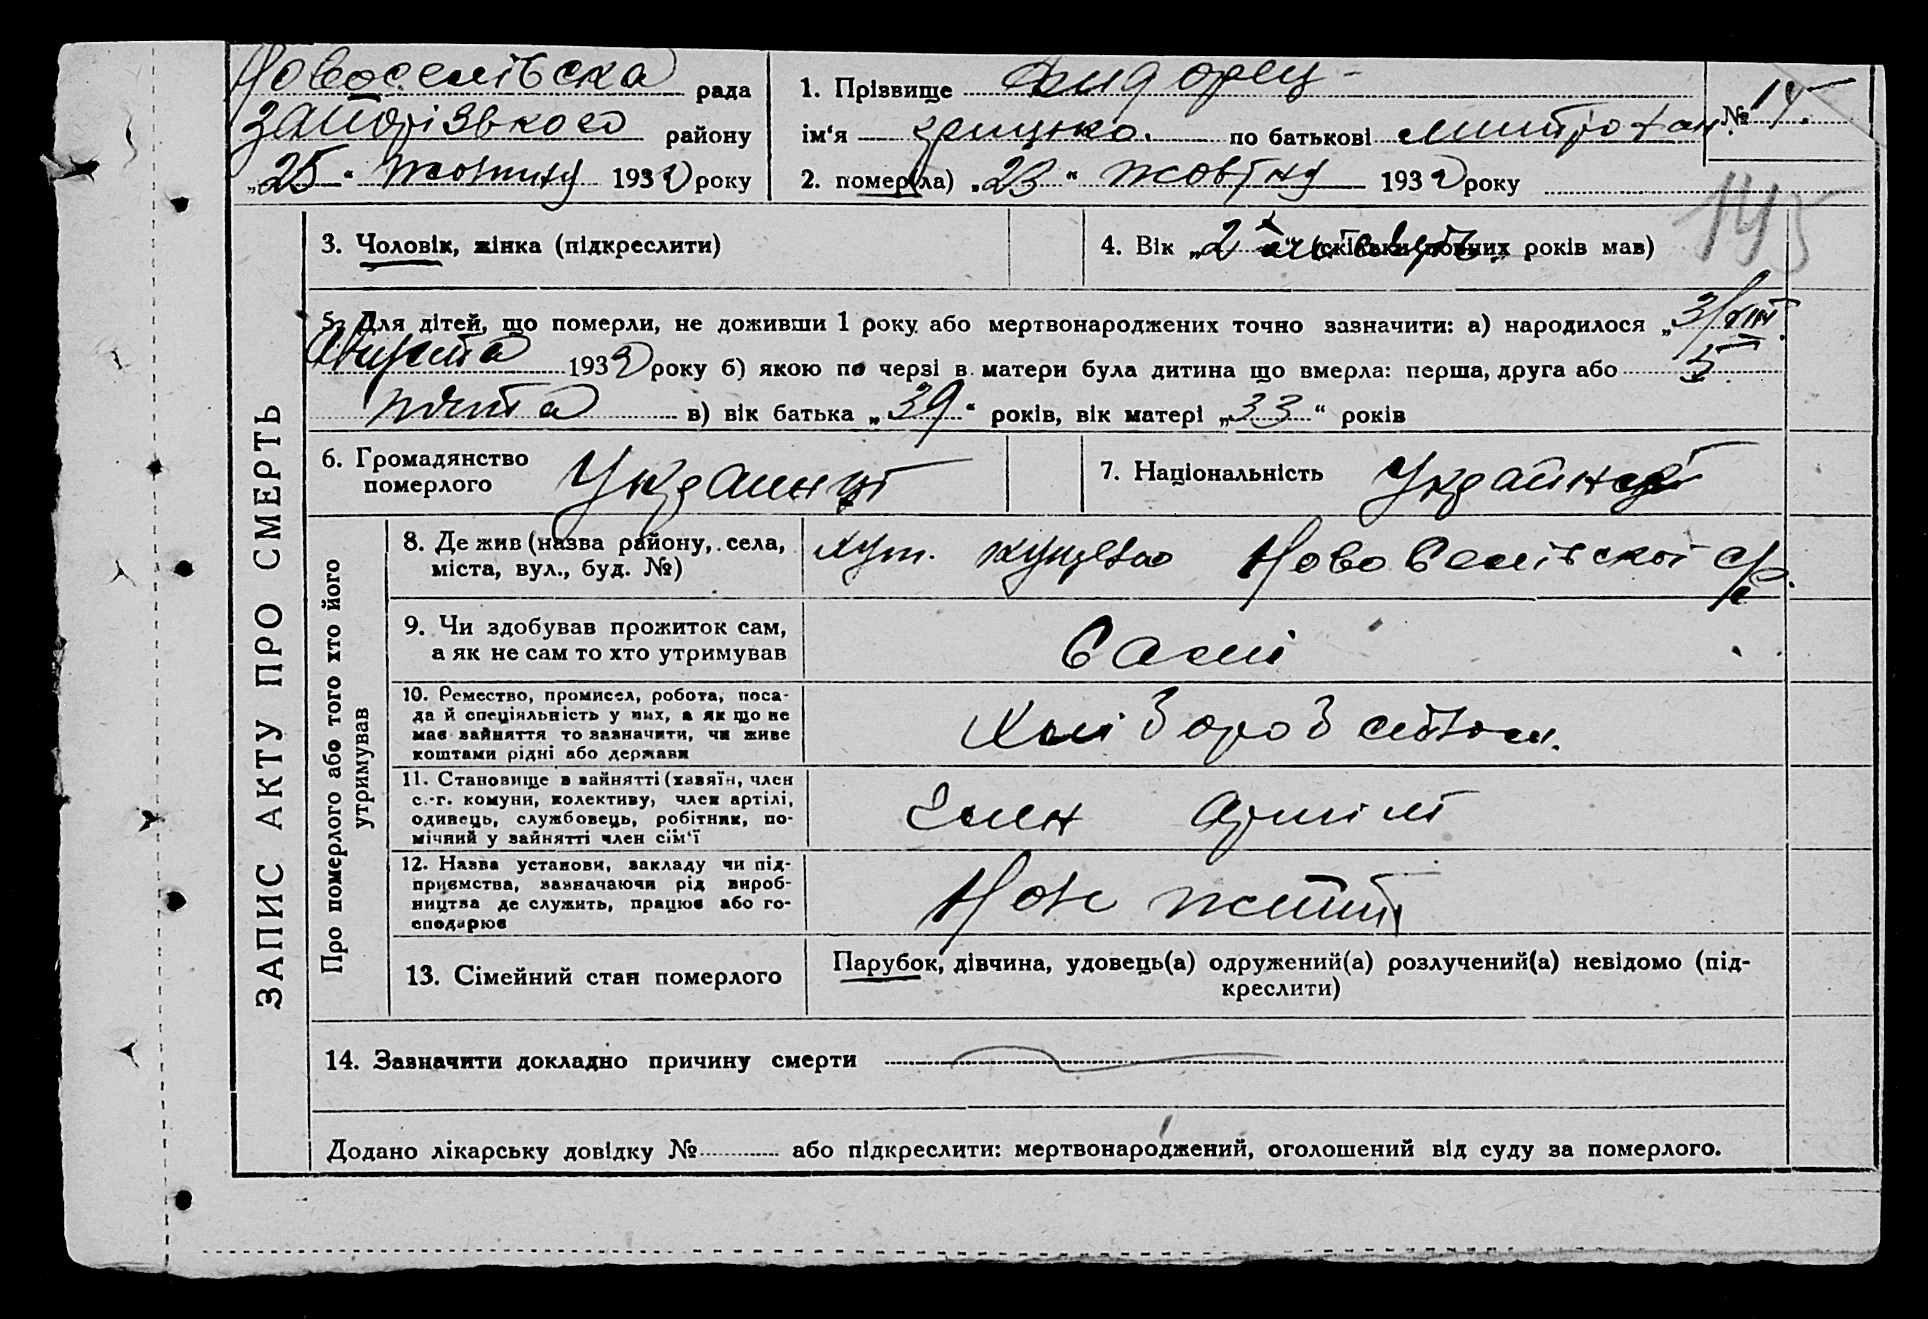 Новоселівська рада
Запорізького району
„25“ жовтня 1932 року
1. Прізвище
ім'я Грицько. по батькові Митрофан.
2. помер(ла) „23“ жовтну 1932 року
№ 14.
145
3. Чоловік, жінка (підкреслити)
4. Вік „2 (скільки повних років мав)
5. Для дітей, що померли, не доживши 1 року або мертвонароджених точно зазначити: а) народилося „3/VIII
Августа 1932 року б) якою по черзі в матери була дитина що вмерла: перша, друга або 5
пята в) вік батька „39“ років, вік матері „33“ років
6. Громадянство
померлого
7. Національність
8. Де жив (назва району, села,
міста, вул., буд. №)
хут. Новоселівскої с/р.
9. Чи здобував прожиток сам,
а як не сам то хто утримував
Самі
10. Ремество, промисел, робота, поса-
да й спеціяльність у них, а як що не
має зайняття то зазначити, чи живе
коштами рідні або держави
11. Становище в зайнятті (хазяїн, член
с.-г. комуни, колективу, член артілі,
одинець, службовець, робітник, по-
мічний у зайнятті член сім'ї
Член Артілі
12. Назва установи, закладу чи під-
приємства, зазначаючи рід вироб-
ництва де служить, працює або го-
сподарює
Нове життя
13. Сімейний стан померлого
Парубок, дівчина, удовець(а) одружений(а) розлучений(а) невідомо (під-
креслити)
14. Зазначити докладно причину смерти
Додано лікарську довідку № або підкреслити: мертвонароджений, оголошений від суду за померлого.
ЗАПИС АКТУ ПРО СМЕРТЬ
Про померлого або того хто його
утримував